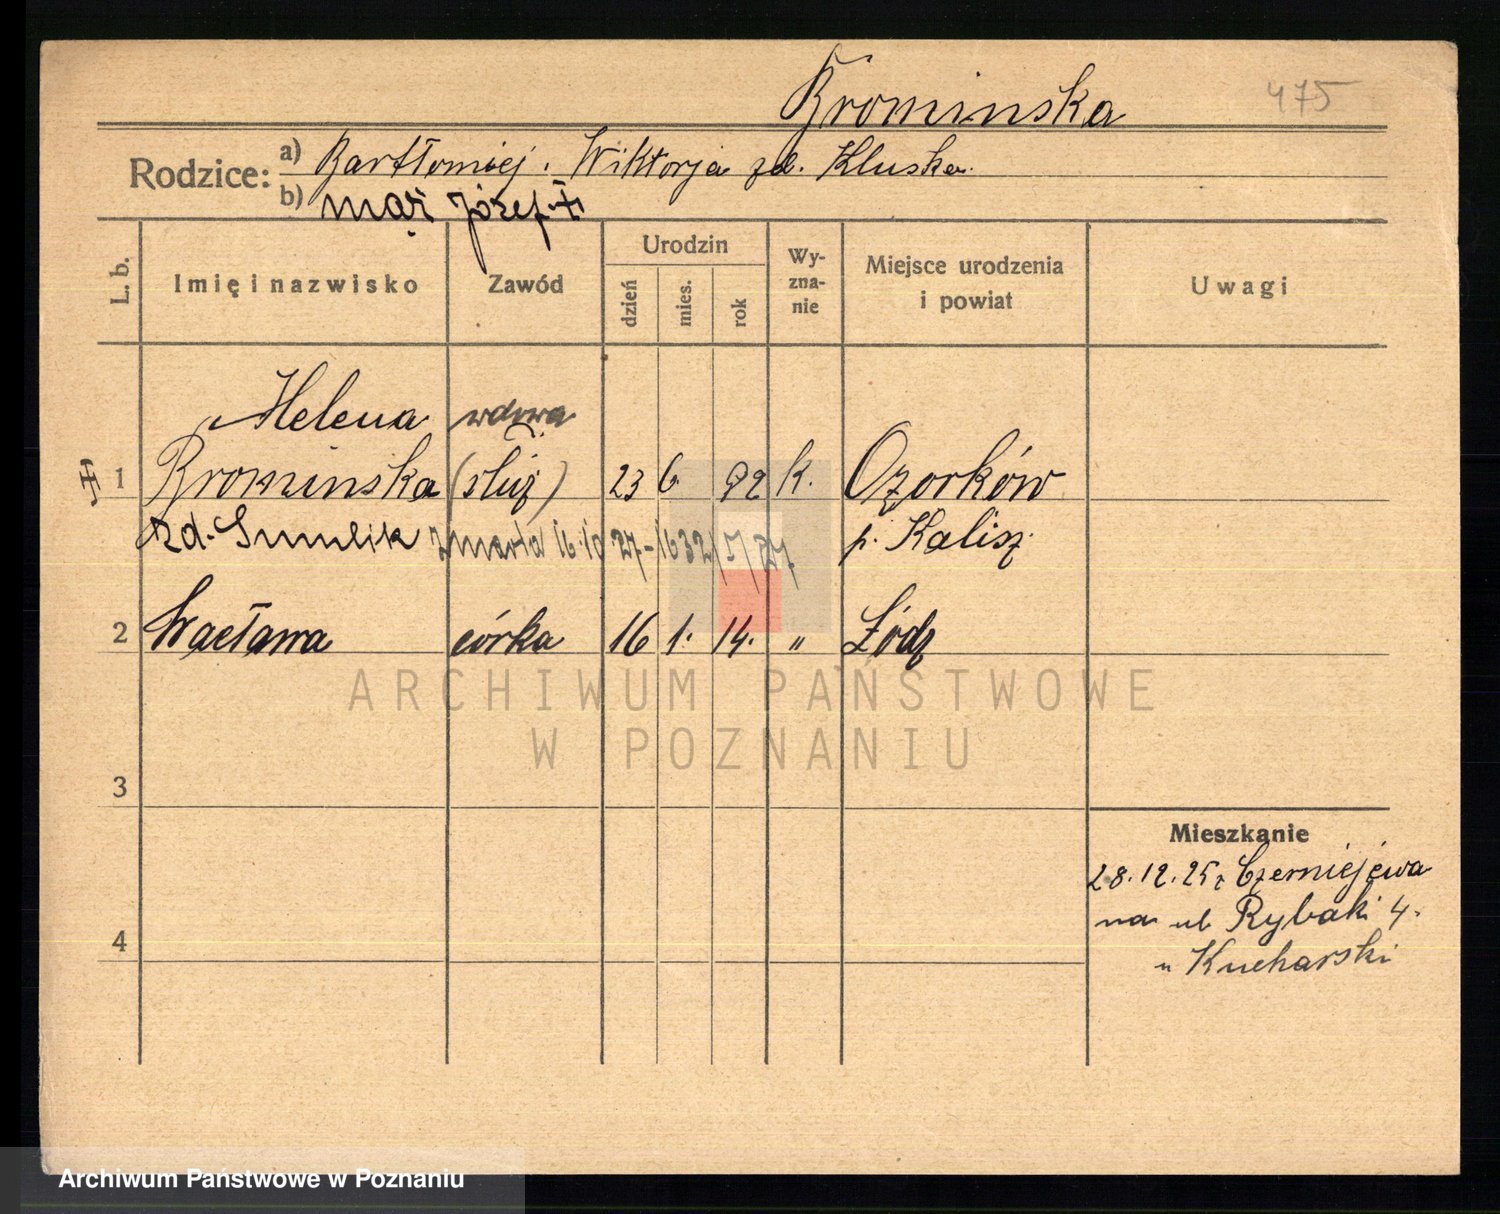 Brominska 475
Rodzice: a) Bartłomiej. Wiktorja zd. Kluska.
b) mąż Józef ‡
L. b. Imię i nazwisko Zawód Urodzin Wyznanie Miejsce urodzenia i powiat Uwagi
dzień mies. rok
Helena wdowa
‡ 1 Brominska (służ) 23 6. 92 k. Ozorków
zd. Smulik zmarła 16.10 27-1632/ p. Kalisz
2 Wacława córka 16 1. 14. " Łódz
ARCHIWUM PAŃSTWOWE
W POZNANIU
3
Mieszkanie
28.12.25 z Czerniejewa
4 na ul Rybaki 4.
u Kucharski
Archiwum Państwowe w Poznaniu